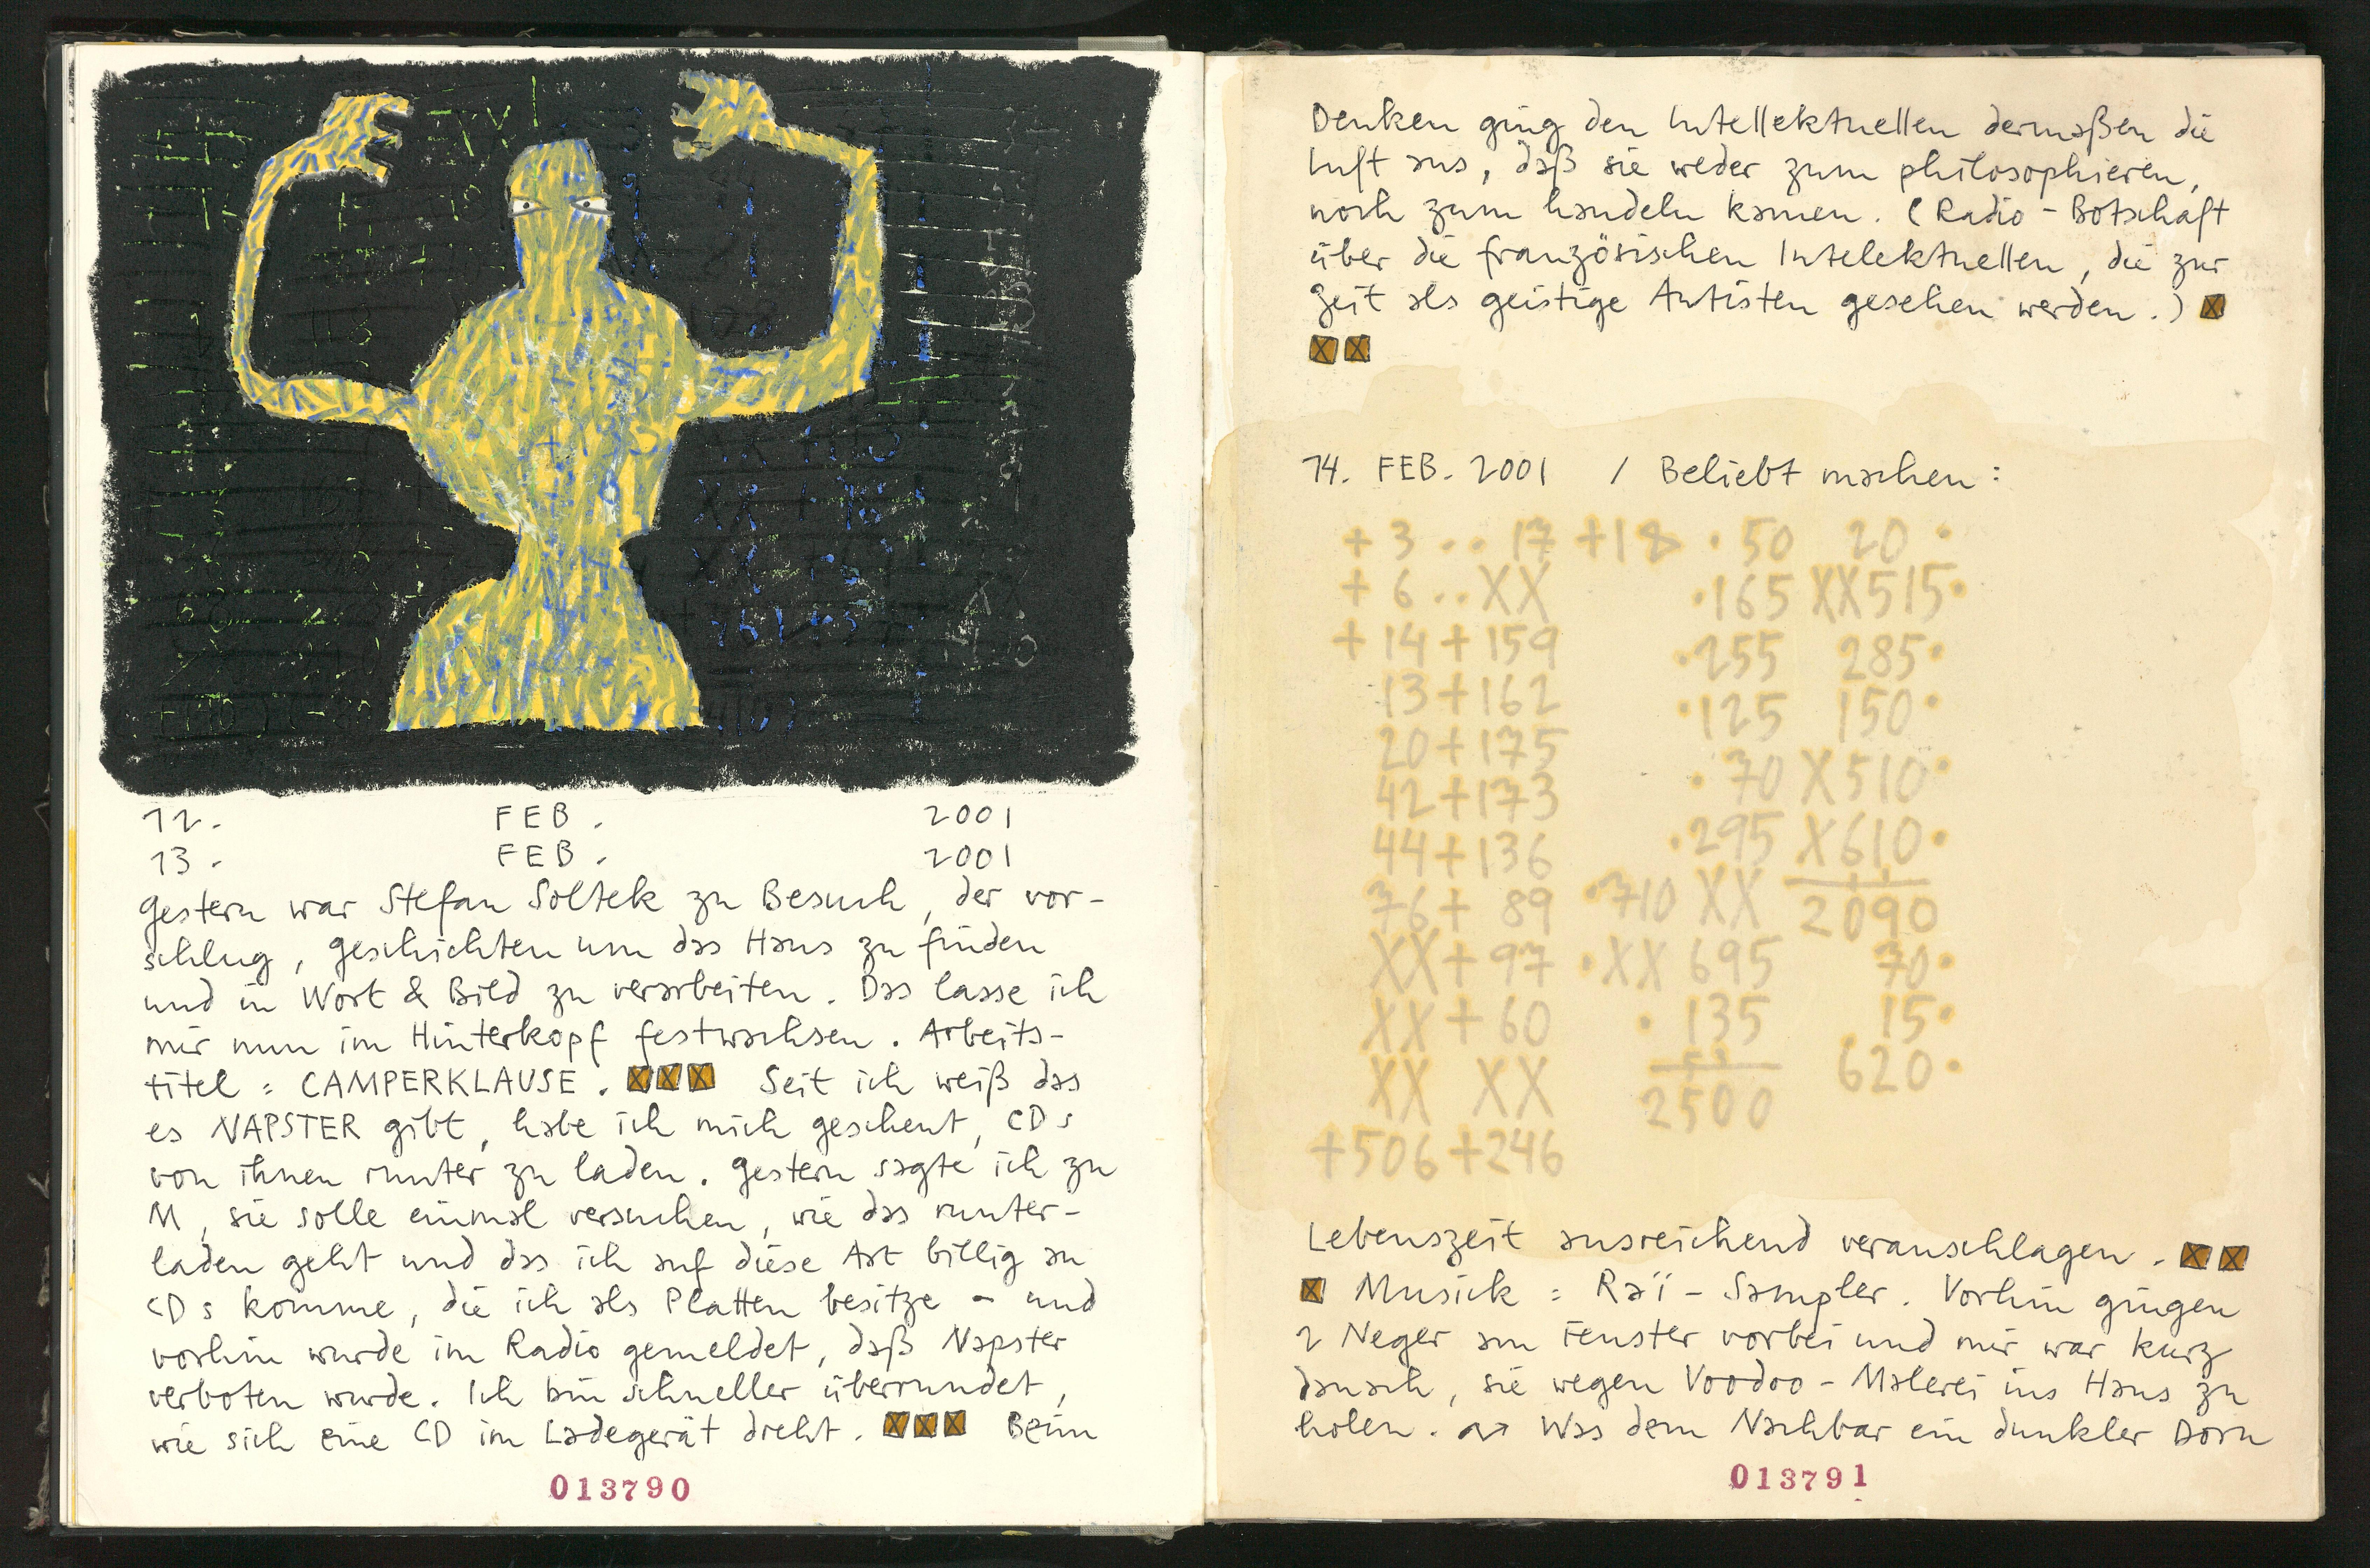 12. FEB. 2001
13. FEB. 2001
Gestern war Stefan Soltek zu Besuch, der vor-
schlug, Geschichten um das Haus zu finden
und in Wort & Bild zu verarbeiten. Das lasse ich
mir nun im Hinterkopf festwachsen. Arbeits-
titel: CAMPERKLAUSE. Seit ich weiß das
es NAPSTER gibt, habe ich mich gescheut, CDs
von ihnen runter zu laden. Gestern sagte ich zu
M, sie solle einmal versuchen, wie das runter-
laden geht und das ich auf diese Art billig an
CDs komme, die ich als Platten besitze – und
vorhin wurde im Radio gemeldet, daß Napster
verboten wurde. Ich bin schneller überrundet,
wie sich eine CD im Ladegerät dreht. Beim
013790
Denken ging den Intellektuellen dermaßen die
Luft aus, daß sie weder zum philosophieren,
noch zum handeln kamen. (Radio-Botschaft
über die französischen Intelektuellen, die zur
Zeit als geistige Autisten gesehen werden.)
14. FEB. 2001 / Beliebt machen:
+ 3 .. 17 +18 · 50 20 ·
+ 6 .. XX ·165 XX515·
+ 14 + 159 ·255 285·
13 + 162 ·125 150·
20 + 175 · 70 X510·
42 + 173 ·295 X610·
44 + 136 ·710 XX 2090
76 + 89 ·XX 695 70·
XX + 97 · 135 15·
XX + 60 2500 620·
XX XX
+506 +246
Lebenszeit ausreichend veranschlagen.
Musick: Raï-Sampler. Vorhin gingen
2 Neger am Fenster vorbei und mir war kurz
danach, sie wegen Voodoo-Malerei ins Haus zu
holen. Was dem Nachbar ein dunkler Dorn
013791